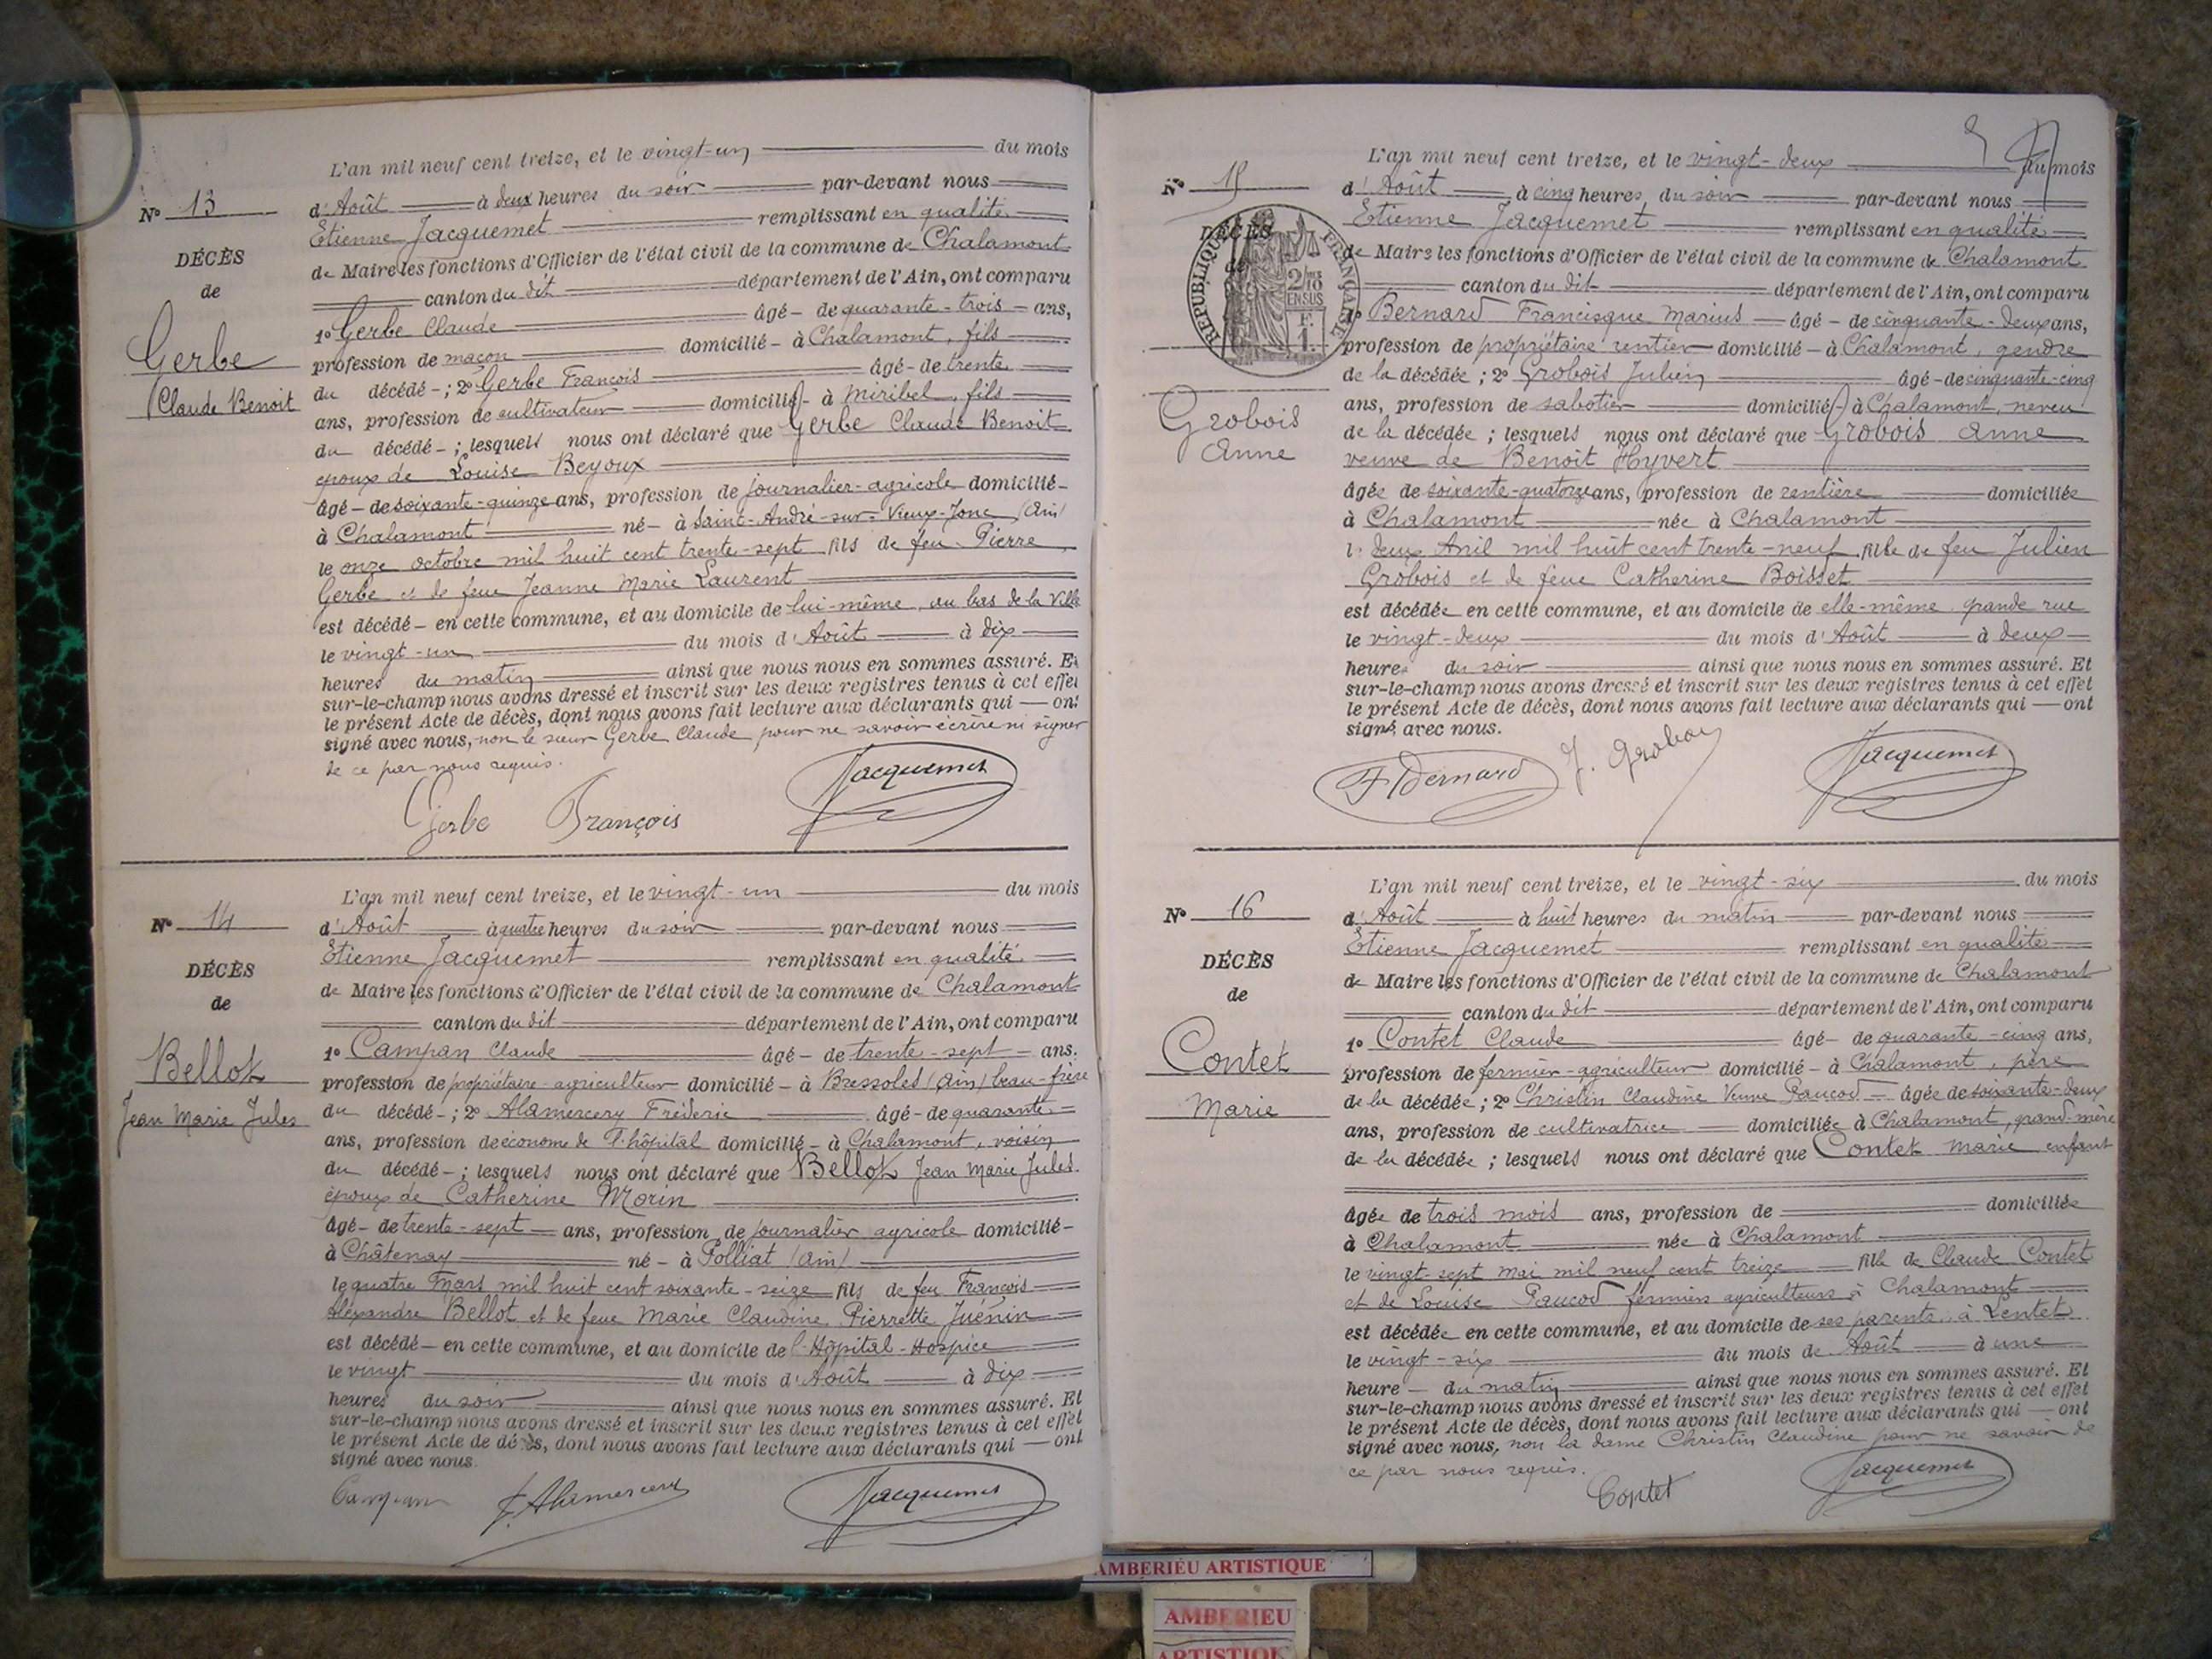 L'an mil neuf cent treize, et le vingt-un du mois
N° 13
d'Août à deux heures du soir par-devant nous
Etienne Jacquemet remplissant en qualité
DÉCÈS
de Maire les fonctions d'Officier de l'état civil de la commune de Chalamont
de
canton du dit département de l'Ain, ont comparu
1° Gerbe Claude âgé de quarante-trois ans,
Gerbe
profession de maçon domicilié à Chalamont, fils
Claude Benoit
du décédé ; 2° Gerbe François âgé de trente
ans, profession de cultivateur domicilié à Miribel, fils
du décédé ; lesquels nous ont déclaré que Gerbe Claude Benoit
époux de Louise Beyoux
âgé de soixante-quinze ans, profession de journalier-agricole domicilié
à Chalamont né à Saint-André-sur-Vieux-Jonc (Ain)
le onze octobre mil huit cent trente-sept fils de feu Pierre
Gerbe et de feue Jeanne Marie Laurent
est décédé en cette commune, et au domicile de lui-même, au bas de la Ville
le vingt-un du mois d'Août à dix
heures du matin ainsi que nous nous en sommes assuré. Et
sur-le-champ nous avons dressé et inscrit sur les deux registres tenus à cet effet
le présent Acte de décès, dont nous avons fait lecture aux déclarants qui ont
signé avec nous, non le sieur Gerbe Claude pour ne savoir écrire ni signer
de ce par nous requis.
Gerbe François Jacquemet
L'an mil neuf cent treize, et le vingt-un du mois
N° 14
d'Août à quatre heures du soir par-devant nous
Etienne Jacquemet remplissant en qualité
DÉCÈS
de Maire les fonctions d'Officier de l'état civil de la commune de Chalamont
de
canton du dit département de l'Ain, ont comparu
1° Campan Claude âgé de trente-sept ans,
Bellot
profession de propriétaire-agriculteur domicilié à Bressoles (Ain) beau-frère
Jean Marie Jules
du décédé ; 2° Alamercery Fréderic âgé de quarante
ans, profession de économe de l'hôpital domicilié à Chalamont, voisin
du décédé ; lesquels nous ont déclaré que Bellot Jean Marie Jules
époux de Catherine Morin
âgé de trente-sept ans, profession de journalier agricole domicilié
à Châtenay né à Polliat (Ain)
le quatre Mars mil huit cent soixante-seize fils de feu François
Alexandre Bellot et de feue Marie Claudine Pierrette Juénin
est décédé en cette commune, et au domicile de l'Hôpital-Hospice
le vingt du mois d'Août à dix
heures du soir ainsi que nous nous en sommes assuré. Et
sur-le-champ nous avons dressé et inscrit sur les deux registres tenus à cet effet
le présent Acte de décès, dont nous avons fait lecture aux déclarants qui ont
signé avec nous.
Campan F. Alamercery Jacquemet
L'an mil neuf cent treize, et le vingt-deux du mois
N° 15
d'Août à cinq heures du soir par-devant nous
Etienne Jacquemet remplissant en qualité
DÉCÈS
de Maire les fonctions d'Officier de l'état civil de la commune de Chalamont
de
RÉPUBLIQUE FRANÇAISE
2/10 EN SUS
F. 1.
canton du dit département de l'Ain, ont comparu
1° Bernard Francisque Marius âgé de cinquante-deux ans,
profession de propriétaire rentier domicilié à Chalamont, gendre
de la décédée ; 2° Grobois Julien âgé de cinquante-cinq
Grobois
Anne
ans, profession de sabotier domicilié à Chalamont, neveu
de la décédée ; lesquels nous ont déclaré que Grobois Anne
veuve de Benoît Hyvert
âgée de soixante-quatorze ans, profession de rentière domiciliée
à Chalamont née à Chalamont
le deux Avril mil huit cent trente-neuf fille de feu Julien
Grobois et de feue Catherine Boisset
est décédée en cette commune, et au domicile de elle-même grande rue
le vingt-deux du mois d'Août à deux
heures du soir ainsi que nous nous en sommes assuré. Et
sur-le-champ nous avons dressé et inscrit sur les deux registres tenus à cet effet
le présent Acte de décès, dont nous avons fait lecture aux déclarants qui ont
signé avec nous.
F Bernard J. Grobois Jacquemet
L'an mil neuf cent treize, et le vingt-six du mois
N° 16
d'Août à huit heures du matin par-devant nous
Etienne Jacquemet remplissant en qualité
DÉCÈS
de Maire les fonctions d'Officier de l'état civil de la commune de Chalamont
de
canton du dit département de l'Ain, ont comparu
1° Contet Claude âgé de quarante-cinq ans,
Contet
profession de fermier-agriculteur domicilié à Chalamont, père
Marie
de la décédée ; 2° Christin Claudine Veuve Paucod âgée de soixante-deux
ans, profession de cultivatrice domiciliée à Chalamont, grand-mère
de la décédée ; lesquels nous ont déclaré que Contet Marie enfant
âgée de trois mois ans, profession de domiciliée
à Chalamont née à Chalamont
le vingt-sept mai mil neuf cent treize fille de Claude Contet
et de Louise Paucod fermiers agriculteurs à Chalamont
est décédée en cette commune, et au domicile de ses parents, à Lentet
le vingt-six du mois de Août à une
heure du matin ainsi que nous nous en sommes assuré. Et
sur-le-champ nous avons dressé et inscrit sur les deux registres tenus à cet effet
le présent Acte de décès, dont nous avons fait lecture aux déclarants qui ont
signé avec nous, non la dame Christin Claudine pour ne savoir de
ce par nous requis.
Contet Jacquemet
AMBERIEU ARTISTIQUE
AMBERIEU
ARTISTIQUE